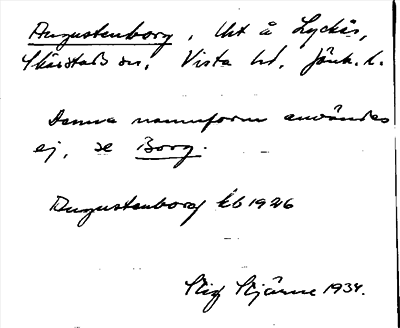 Augustenborg, lht å Lyckås,
Skärstads sn, Vista hd, Jönk. l.
Denna namnform användes
ej, se Borg.
Augustenborg kb 1926
Stig Stjärne 1934.